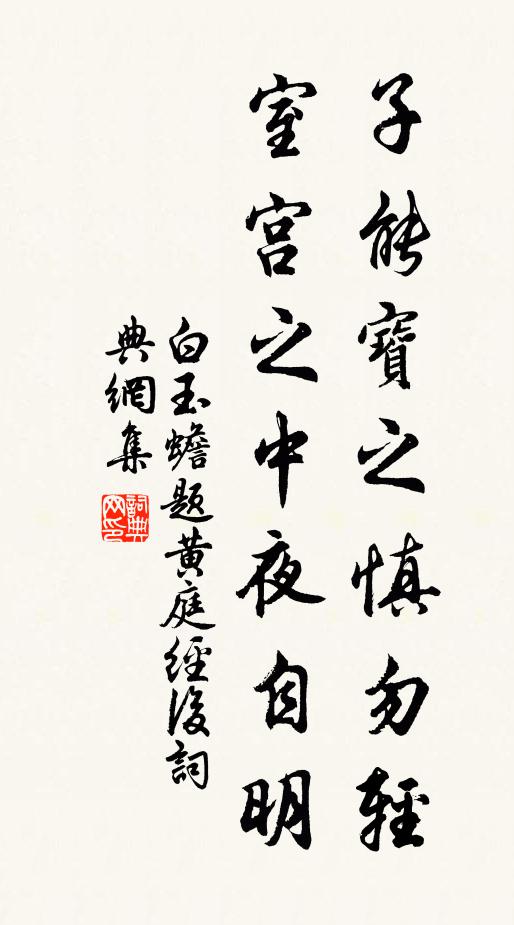 子能寶之慎勿輕
室宮之中夜自明
白玉蟾題黃庭經後詞
典網集
詞典網印